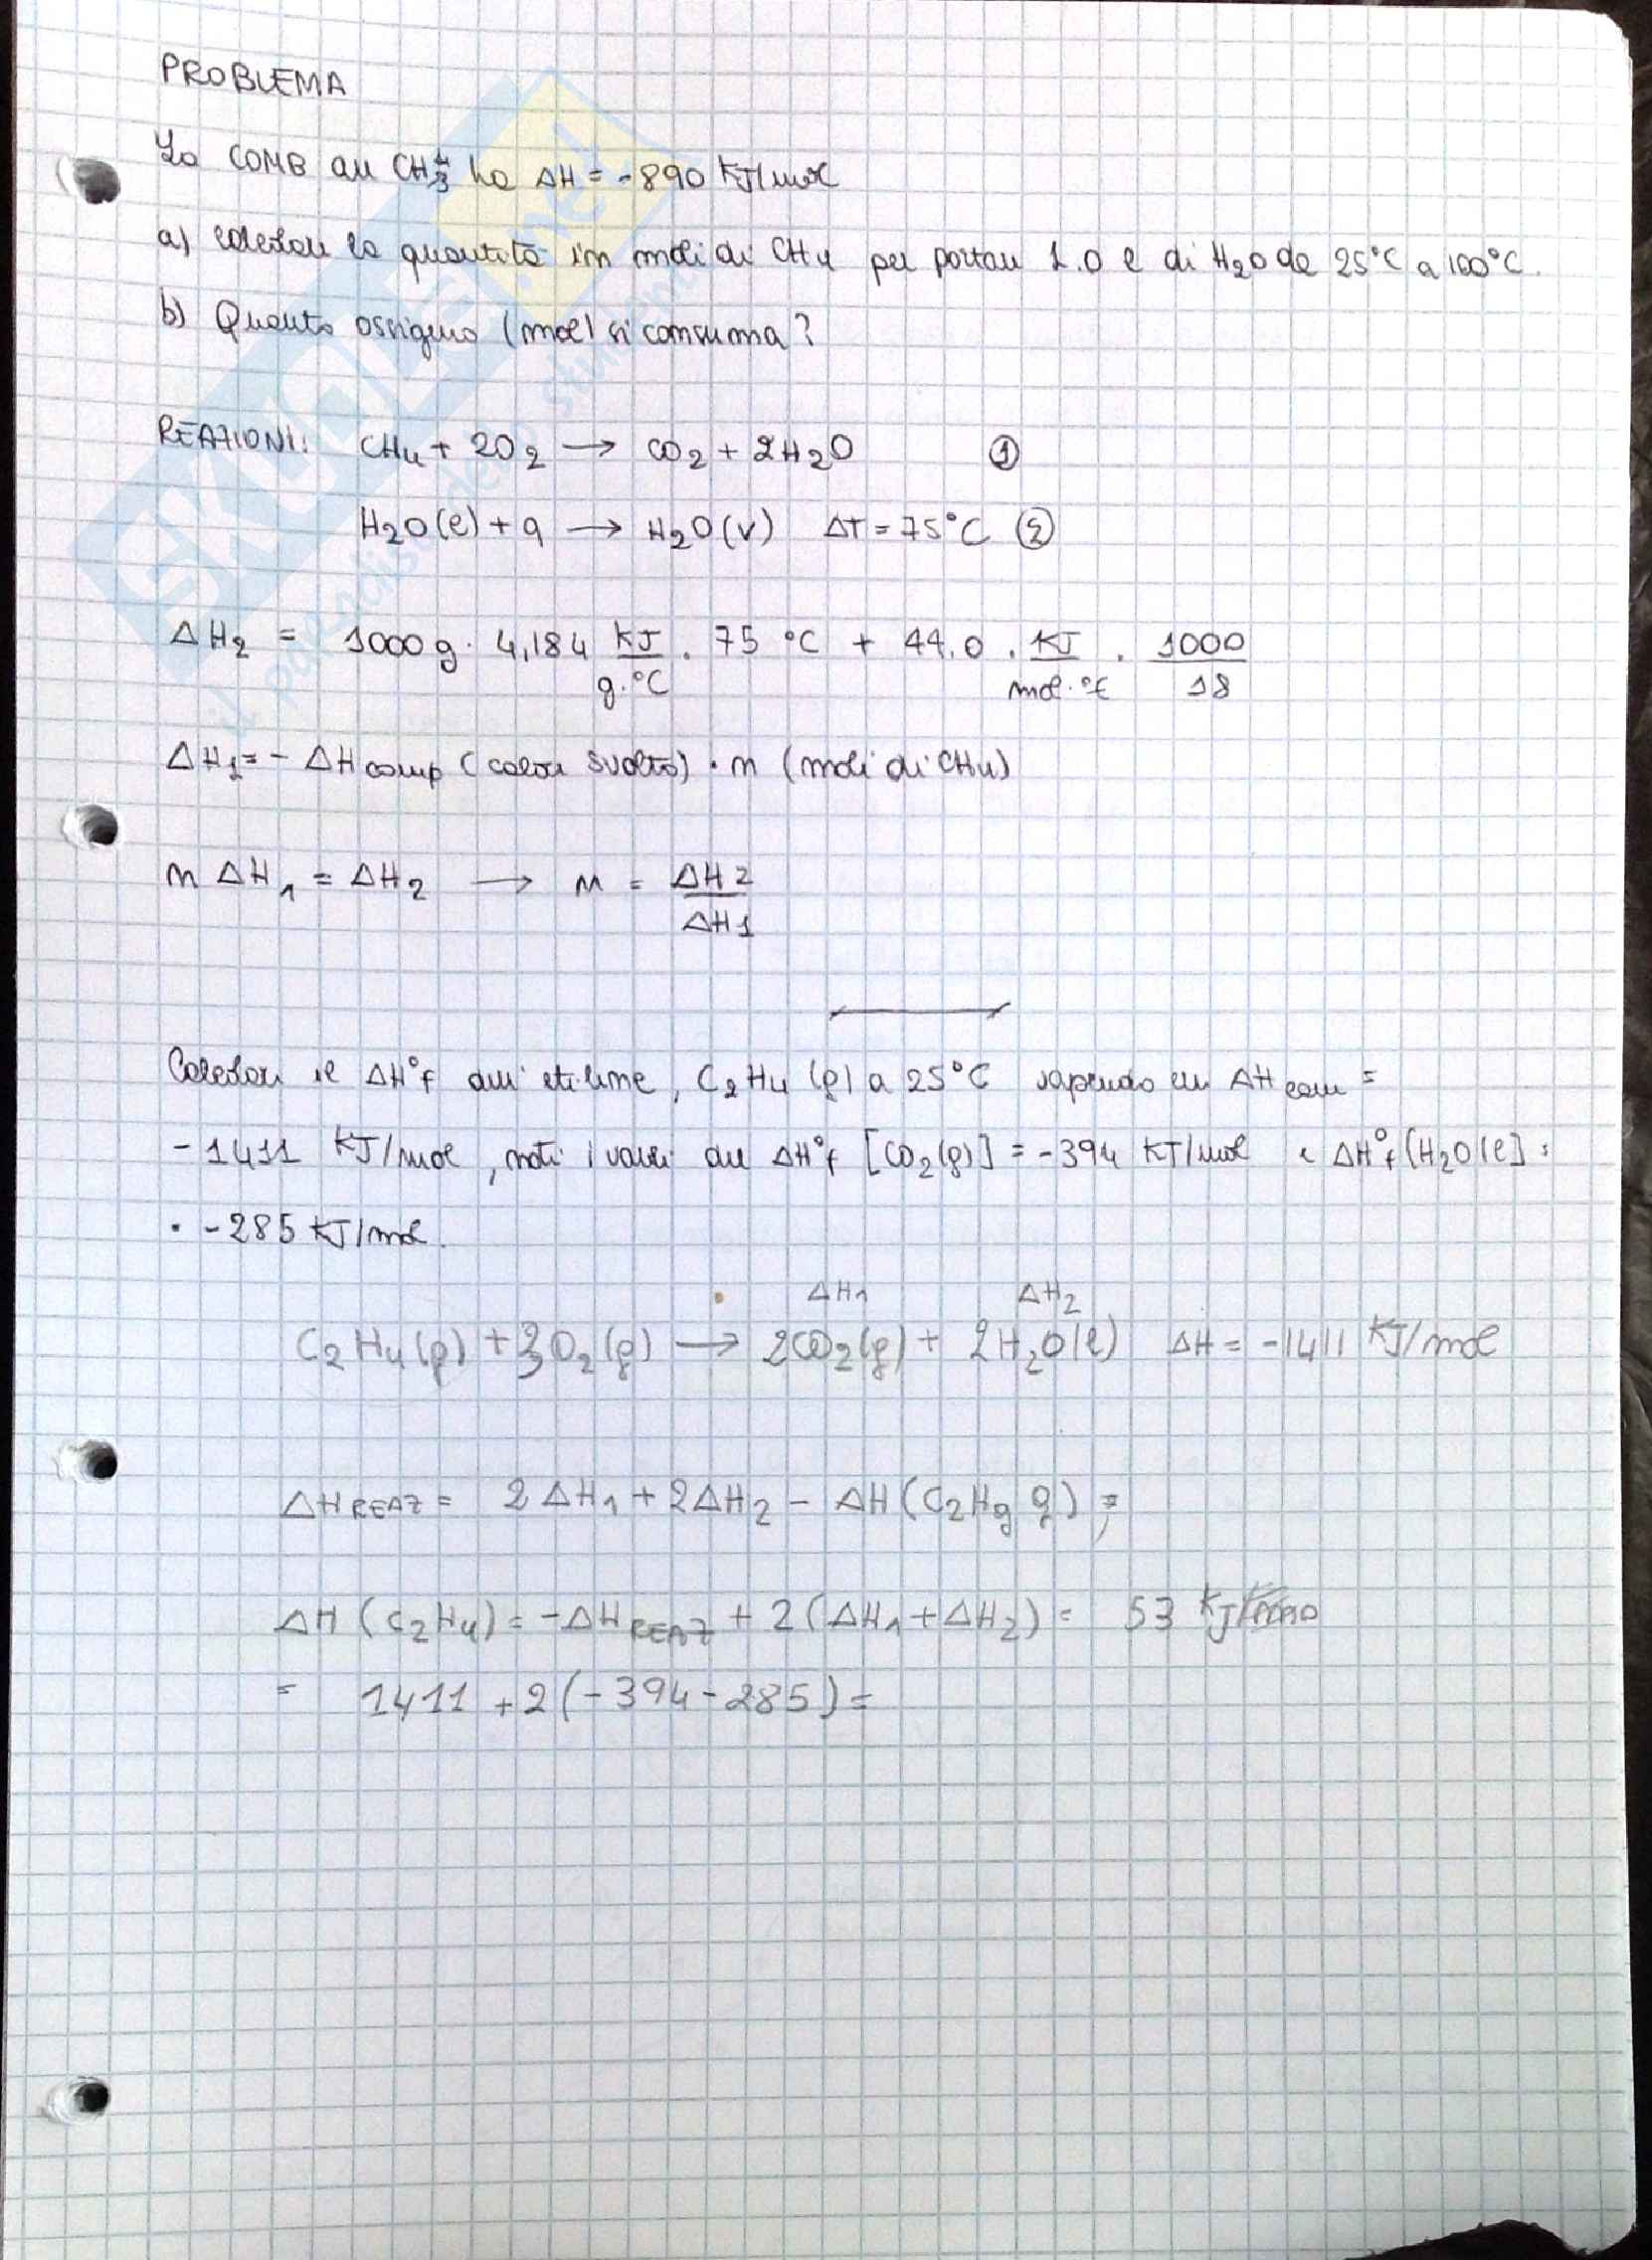 PROBLEMA
La COMB del CH4 ha ΔH = -890 KJ/mol
a) calcolare la quantità in moli di CH4 per portare 1.0 l di H2O da 25°C a 100°C.
b) Quanto ossigeno (mol) si consuma?
REAZIONI: CH4 + 2O2 → CO2 + 2H2O ①
H2O(l) + q → H2O(v) ΔT = 75°C ②
ΔH2 = 1000 g · 4,184 KJ/g·°C · 75 °C + 44.0 · KJ/mol·°C · 1000/18
ΔH1 = - ΔH comb (calore svolto) · n (moli di CH4)
n ΔH1 = ΔH2 → n = ΔH2/ΔH1
Calcolare il ΔH°f dell'etilene, C2H4 (g) a 25°C sapendo che ΔH com =
-1411 KJ/mol, noti i valori del ΔH°f [CO2(g)] = -394 KJ/mol e ΔH°f [H2O(l)] =
· -285 KJ/mol.
ΔH1 ΔH2
C2H4(g) + 3O2(g) → 2CO2(g) + 2H2O(l) ΔH = -1411 KJ/mol
ΔH REAZ = 2ΔH1 + 2ΔH2 - ΔH (C2H4 g) =
ΔH (C2H4) = -ΔH REAZ + 2(ΔH1 + ΔH2) = 53 KJ
= 1411 + 2(-394-285) =
SKUOLA.net
il paradiso dello studente